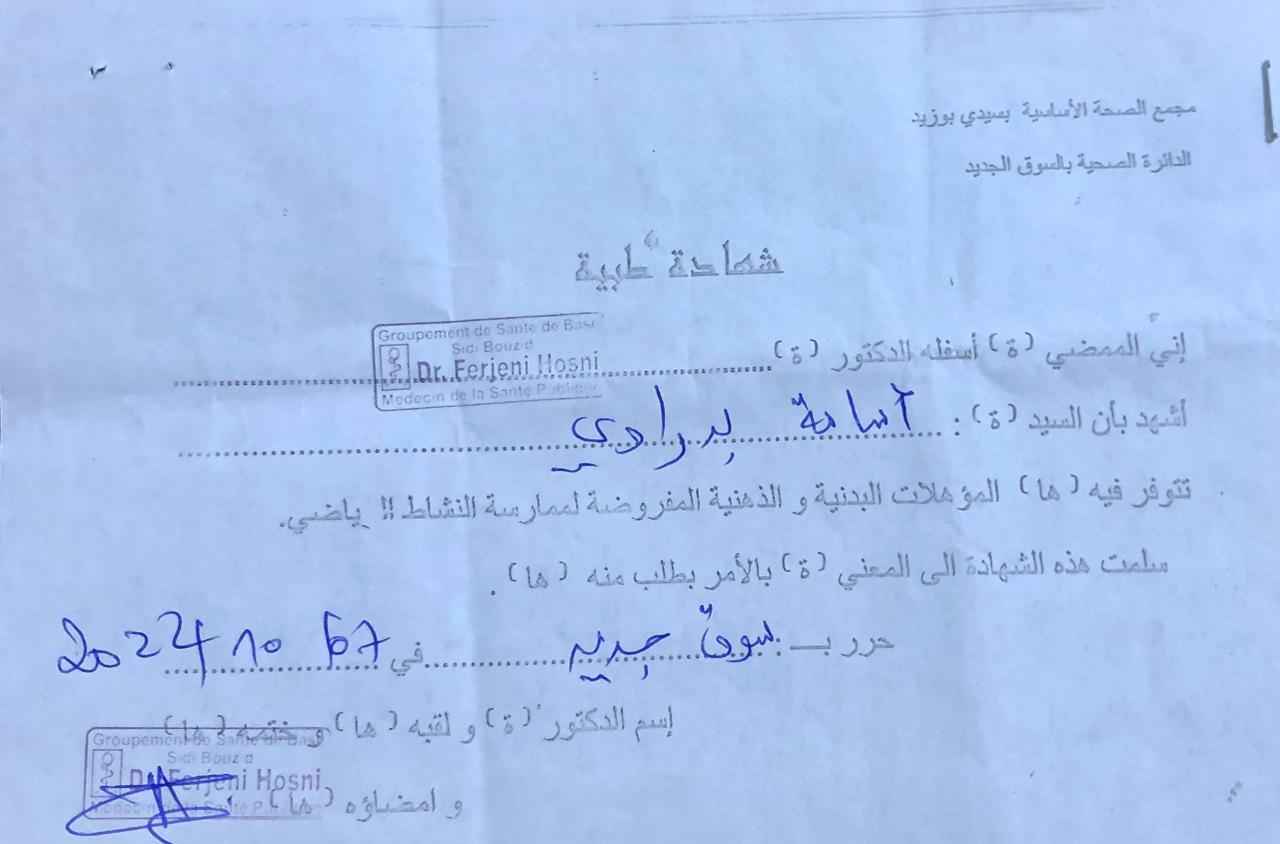 مجمع الصحة الأساسية بسيدي بوزيد
الدائرة الصحية بالسوق الجديد
شهادة طبية
Groupement de Sante de Base
Sidi Bouzid
إني الممضي (ة) أسفله الدكتور (ة) Dr. Ferjeni Hosni
Medecin de la Sante Publique
أشهد بأن السيد (ة) : أسامة بدراوي
تتوفر فيه (ها) المؤهلات البدنية و الذهنية المفروضة لممارسة النشاط الرياضي.
سلمت هذه الشهادة الى المعني (ة) بالأمر بطلب منه (ها) .
حرر بـ سوق جديد في
إسم الدكتور (ة) و لقبه (ها) و ختمه (ها)
Groupement de Sante de Base
Sidi Bouzid
Dr. Ferjeni Hosni
Medecin de la Sante
و امضاؤه (ها)